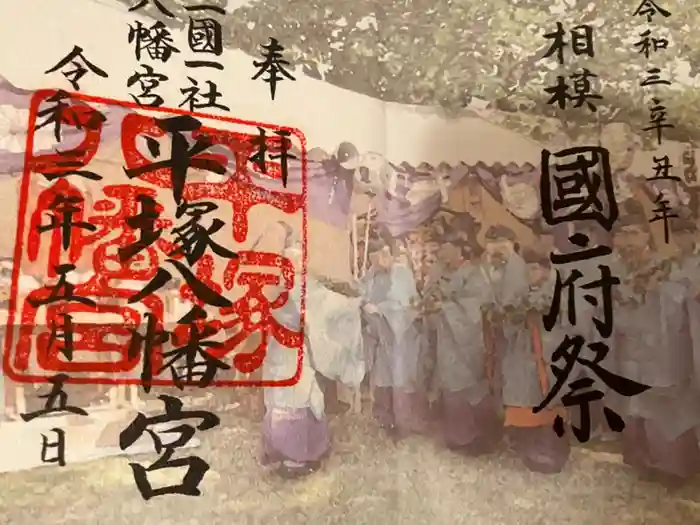 令和三辛丑年
相模
國府祭
奉拝
一國一社
八幡宮
平塚八幡宮
令和三年五月五日
平塚
八幡宮